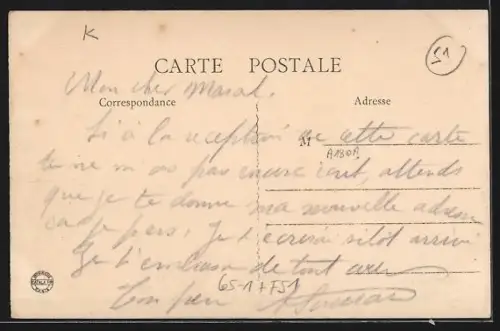 K
51
CARTE POSTALE
Mon cher Marcel.
Correspondance
Adresse
Si à la reception de cette carte
M
A180A
tu ne m as pas encore écrit, attends
que je te donne ma nouvelle adresse
car je pars. Je t'ecrirai sitot arrivé
Je t'embrasse de tout cœur
Ton pere
65-1 + FS1